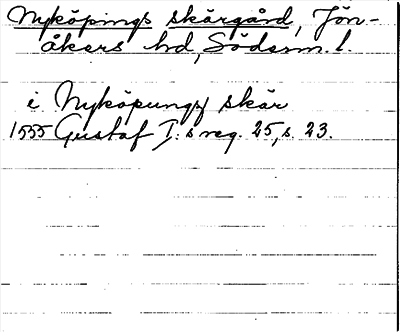 Nyköpings skärgård, Jön-
åkers hd, Söderm. l.
i Nyköpungz skär
1555 Gustaf I:s reg. 25, s. 23.